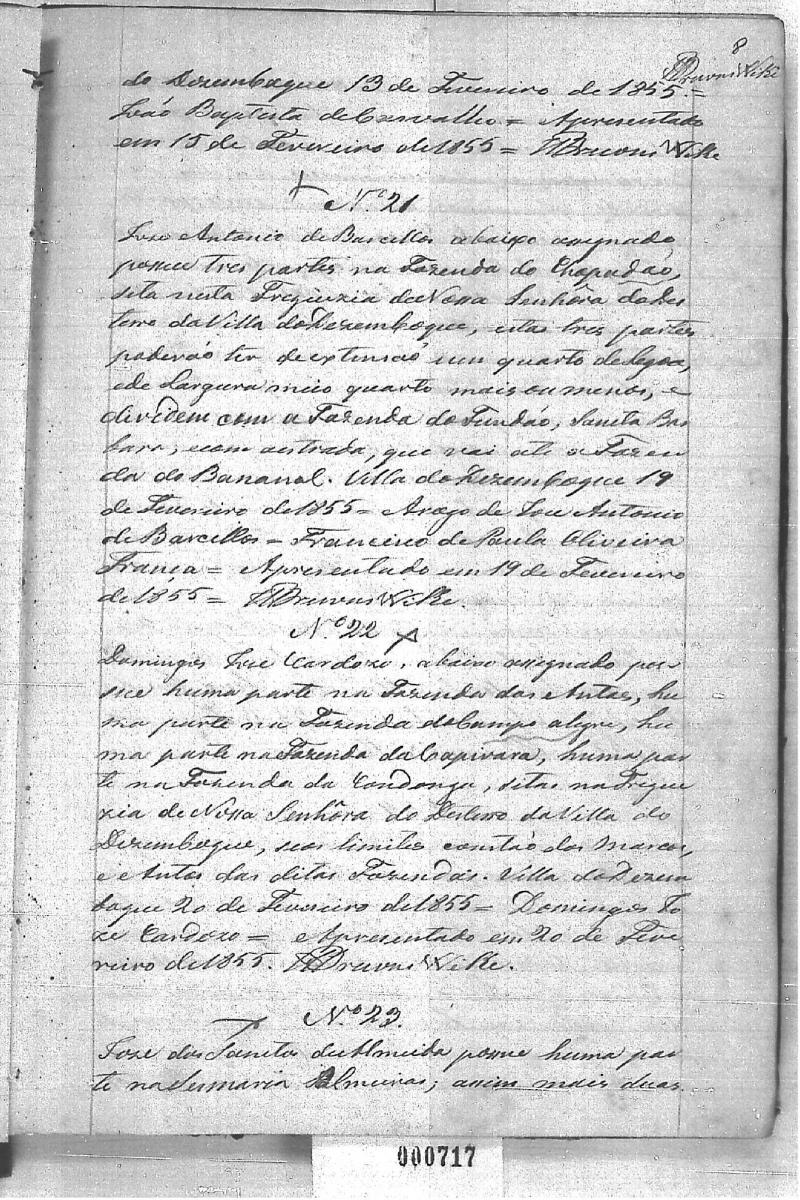 8
BrunsWike
do Dezemboque 13 de Fevereiro de 1855 =
João Baptista de Carvalho = Apresentado
em 15 de Fevereiro de 1855 = BrunsWike
Nº 21
Jose Antonio de Barcellos abaixo assignado,
possue tres partes na Fazenda do Chapadão,
sita nesta Freguezia de Nossa Senhôra do Des
terro da Villa do Dezemboque, estas tres partes
poderão ter de extensão um quarto de legoa,
e de largura meio quarto mais ou menos, e
dividem com a Fazenda do Fundão, Santa Bar
bara, e com a estrada, que vai até a Fazen
da do Bananal. Villa do Dezemboque 19
de Fevereiro de 1855 = A rogo de Jose Antonio
de Barcellos = Francisco de Paula Oliveira
França = Apresentado em 19 de Fevereiro
de 1855 = BrunsWike
Nº 22
Domingos Jose Cardozo, abaixo assignado pos
sue huma parte na Fazenda das Antas, hu
ma parte na Fazenda do Campo alegre, hu
ma parte na Fazenda da Capivara, huma par
te na Fazenda da Condonga, sitas na Fregue
zia de Nossa Senhôra do Desterro da Villa do
Dezemboque, seos limites constão dos Marcos,
e Autos das ditas Fazendas. Villa do Dezem
boque 20 de Fevereiro de 1855 = Domingos Jo
ze Cardozo = Apresentado em 20 de Feve
reiro de 1855. BrunsWike.
Nº 23.
Joze dos Santos de Almeida possue huma par
te na Sesmaria Palmeiras; assim mais duas
000717